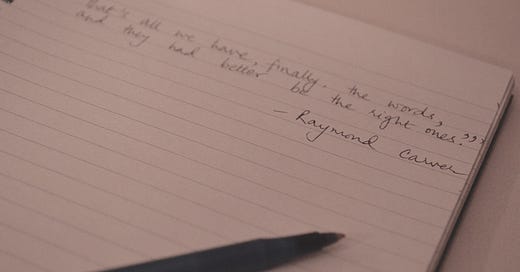 That's all we have, finally, the words,
and they had better be the right ones."
- Raymond Carver